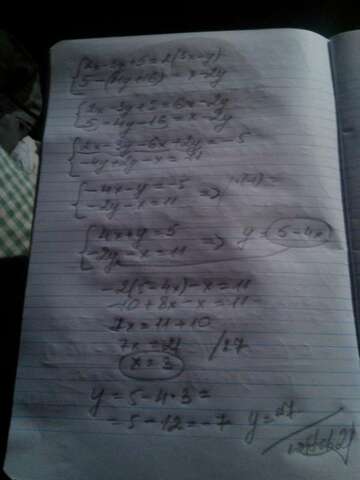 2x-3y+5=2(3x-y)
5-(4y+16)=x-2y
2x-3y+5=6x-2y
5-4y-16=x-2y
2x-3y-6x+2y=-5
-4y+2y-x=11
-4x-y=-5 =>
-2y-x=11
4x+y=5 => y=5-4x
-2y-x=11
-2(5-4x)-x=11
-10+8x-x=11
7x=11+10
7x=21
x=3
y=5-4·3=
=5-12=-7